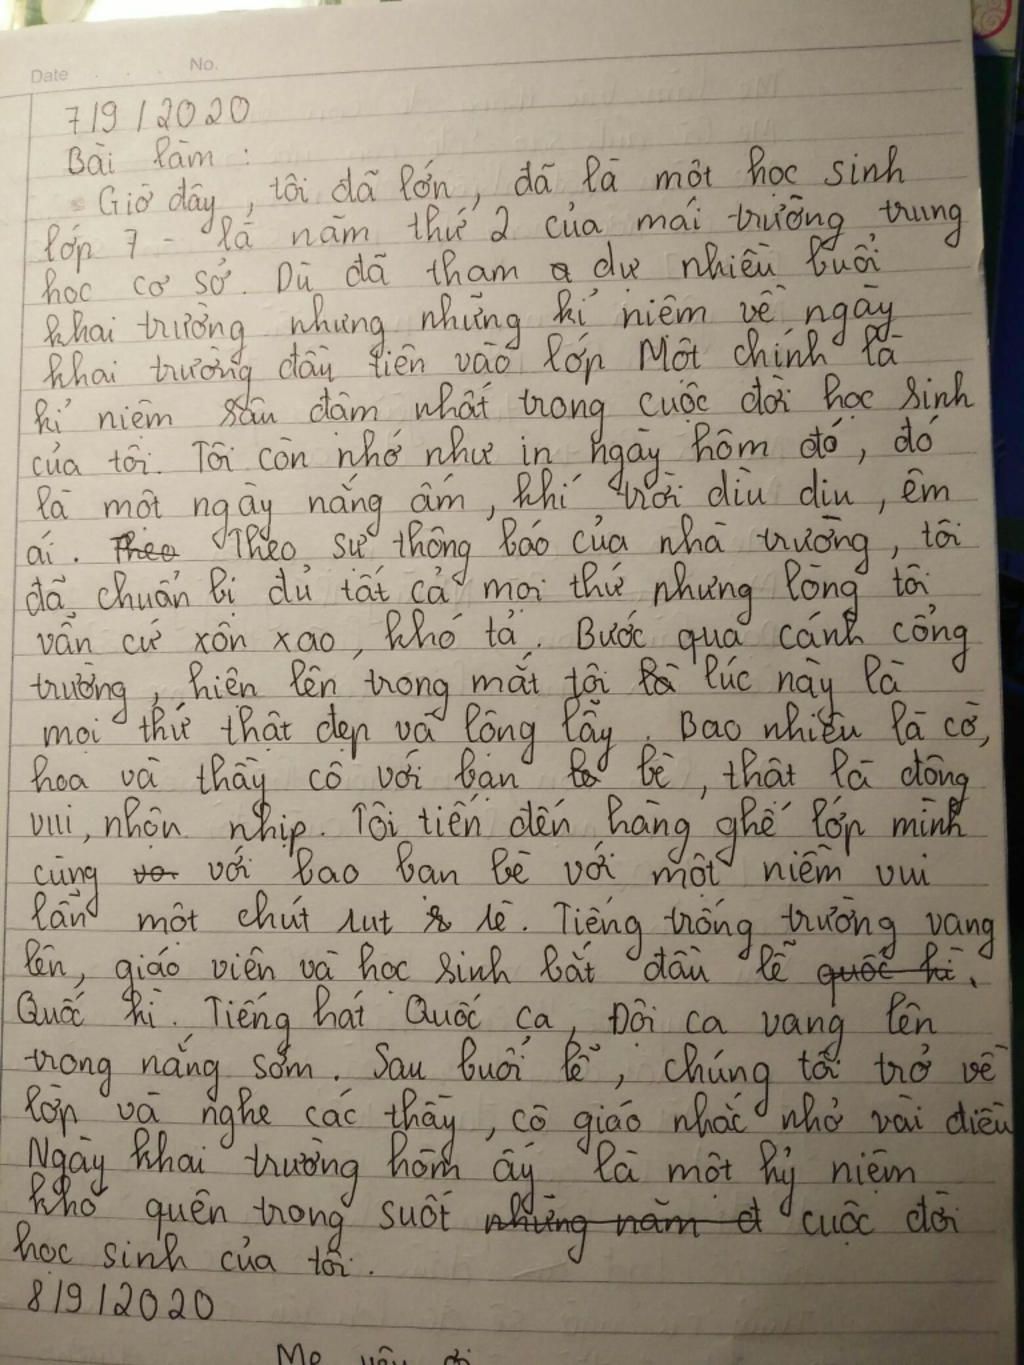 Date . . . No.
7/9/2020
Bài làm :
Giờ đây, tôi đã lớn, đã là một học sinh
lớp 7 - là năm thứ 2 của mái trường trung
học cơ sở. Dù đã tham dự nhiều buổi
khai trường nhưng những kỉ niệm về ngày
khai trường đầu tiên vào lớp Một chính là
kỉ niệm sâu đậm nhất trong cuộc đời học sinh
của tôi. Tôi còn nhớ như in ngày hôm đó, đó
là một ngày nắng ấm, khí trời dìu dịu, êm
ái. Theo Theo sự thông báo của nhà trường, tôi
đã chuẩn bị đủ tất cả mọi thứ nhưng lòng tôi
vẫn cứ xôn xao, khó tả. Bước qua cánh cổng
trường, hiện lên trong mắt tôi là lúc này là
mọi thứ thật đẹp và lộng lẫy. Bao nhiêu là cờ,
hoa và thầy cô với bạn bè, thật là đông
vui, nhộn nhịp. Tôi tiến đến hàng ghế lớp mình
cùng với bao bạn bè với một niềm vui
lẫn một chút rụt rè. Tiếng trống trường vang
lên, giáo viên và học sinh bắt đầu lễ quốc kì.
Quốc kì. Tiếng hát Quốc ca, Đội ca vang lên
trong nắng sớm. Sau buổi lễ, chúng tôi trở về
lớp và nghe các thầy, cô giáo nhắc nhở vài điều
Ngày khai trường hôm ấy là một kỷ niệm
khó quên trong suốt những năm đ cuộc đời
học sinh của tôi.
8/9/2020